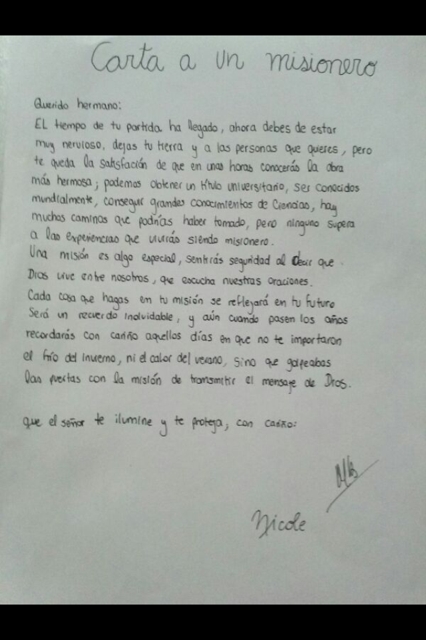 Carta a un misionero
Querido hermano:
EL tiempo de tu partida ha llegado, ahora debes de estar
muy nervioso, dejas tu tierra y a las personas que quieres, pero
te queda la satisfacción de que en unas horas conocerás la obra
más hermosa; podemos obtener un título universitario, ser conocidos
mundialmente, conseguir grandes conocimientos de Ciencias, hay
muchos caminos que podrías haber tomado, pero ninguno supera
a las experiencias que vivirás siendo misionero.
Una misión es algo especial, sentirás seguridad al decir que
Dios vive entre nosotros, que escucha nuestras oraciones.
Cada cosa que hagas en tu misión se reflejará en tu futuro
Será un recuerdo inolvidable, y aún cuando pasen los años
recordarás con cariño aquellos días en que no te importaron
el frío del invierno, ni el calor del verano, sino que golpeabas
las puertas con la misión de transmitir el mensaje de Dios.
que el señor te ilumine y te proteja, con cariño:
Nicole